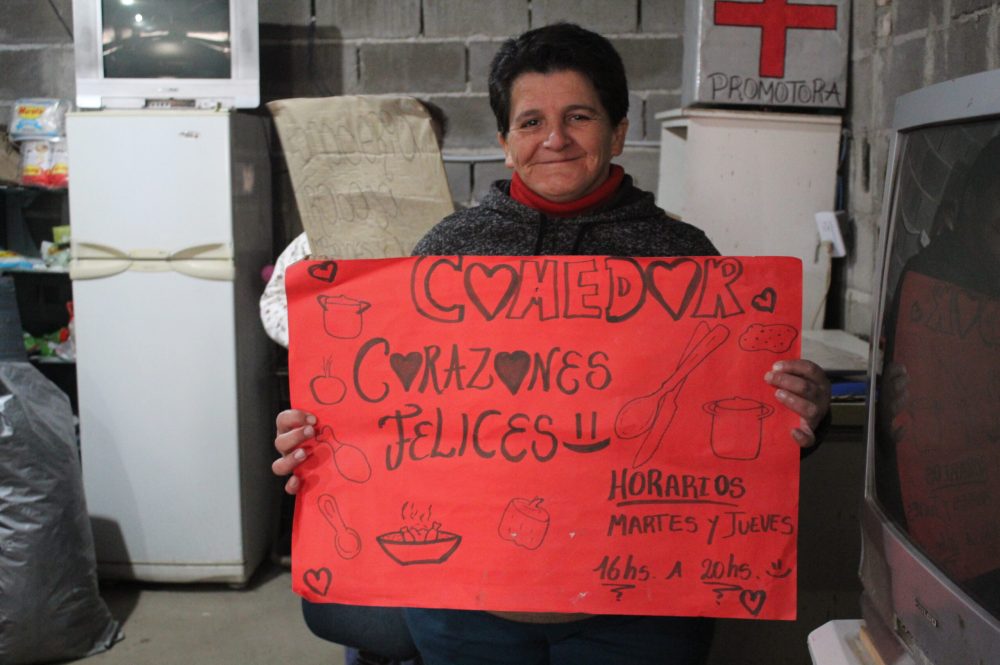 PROMOTORA
COMEDOR
CORAZONES
FELICES
HORARIOS
MARTES Y JUEVES
16hs. A 20hs.